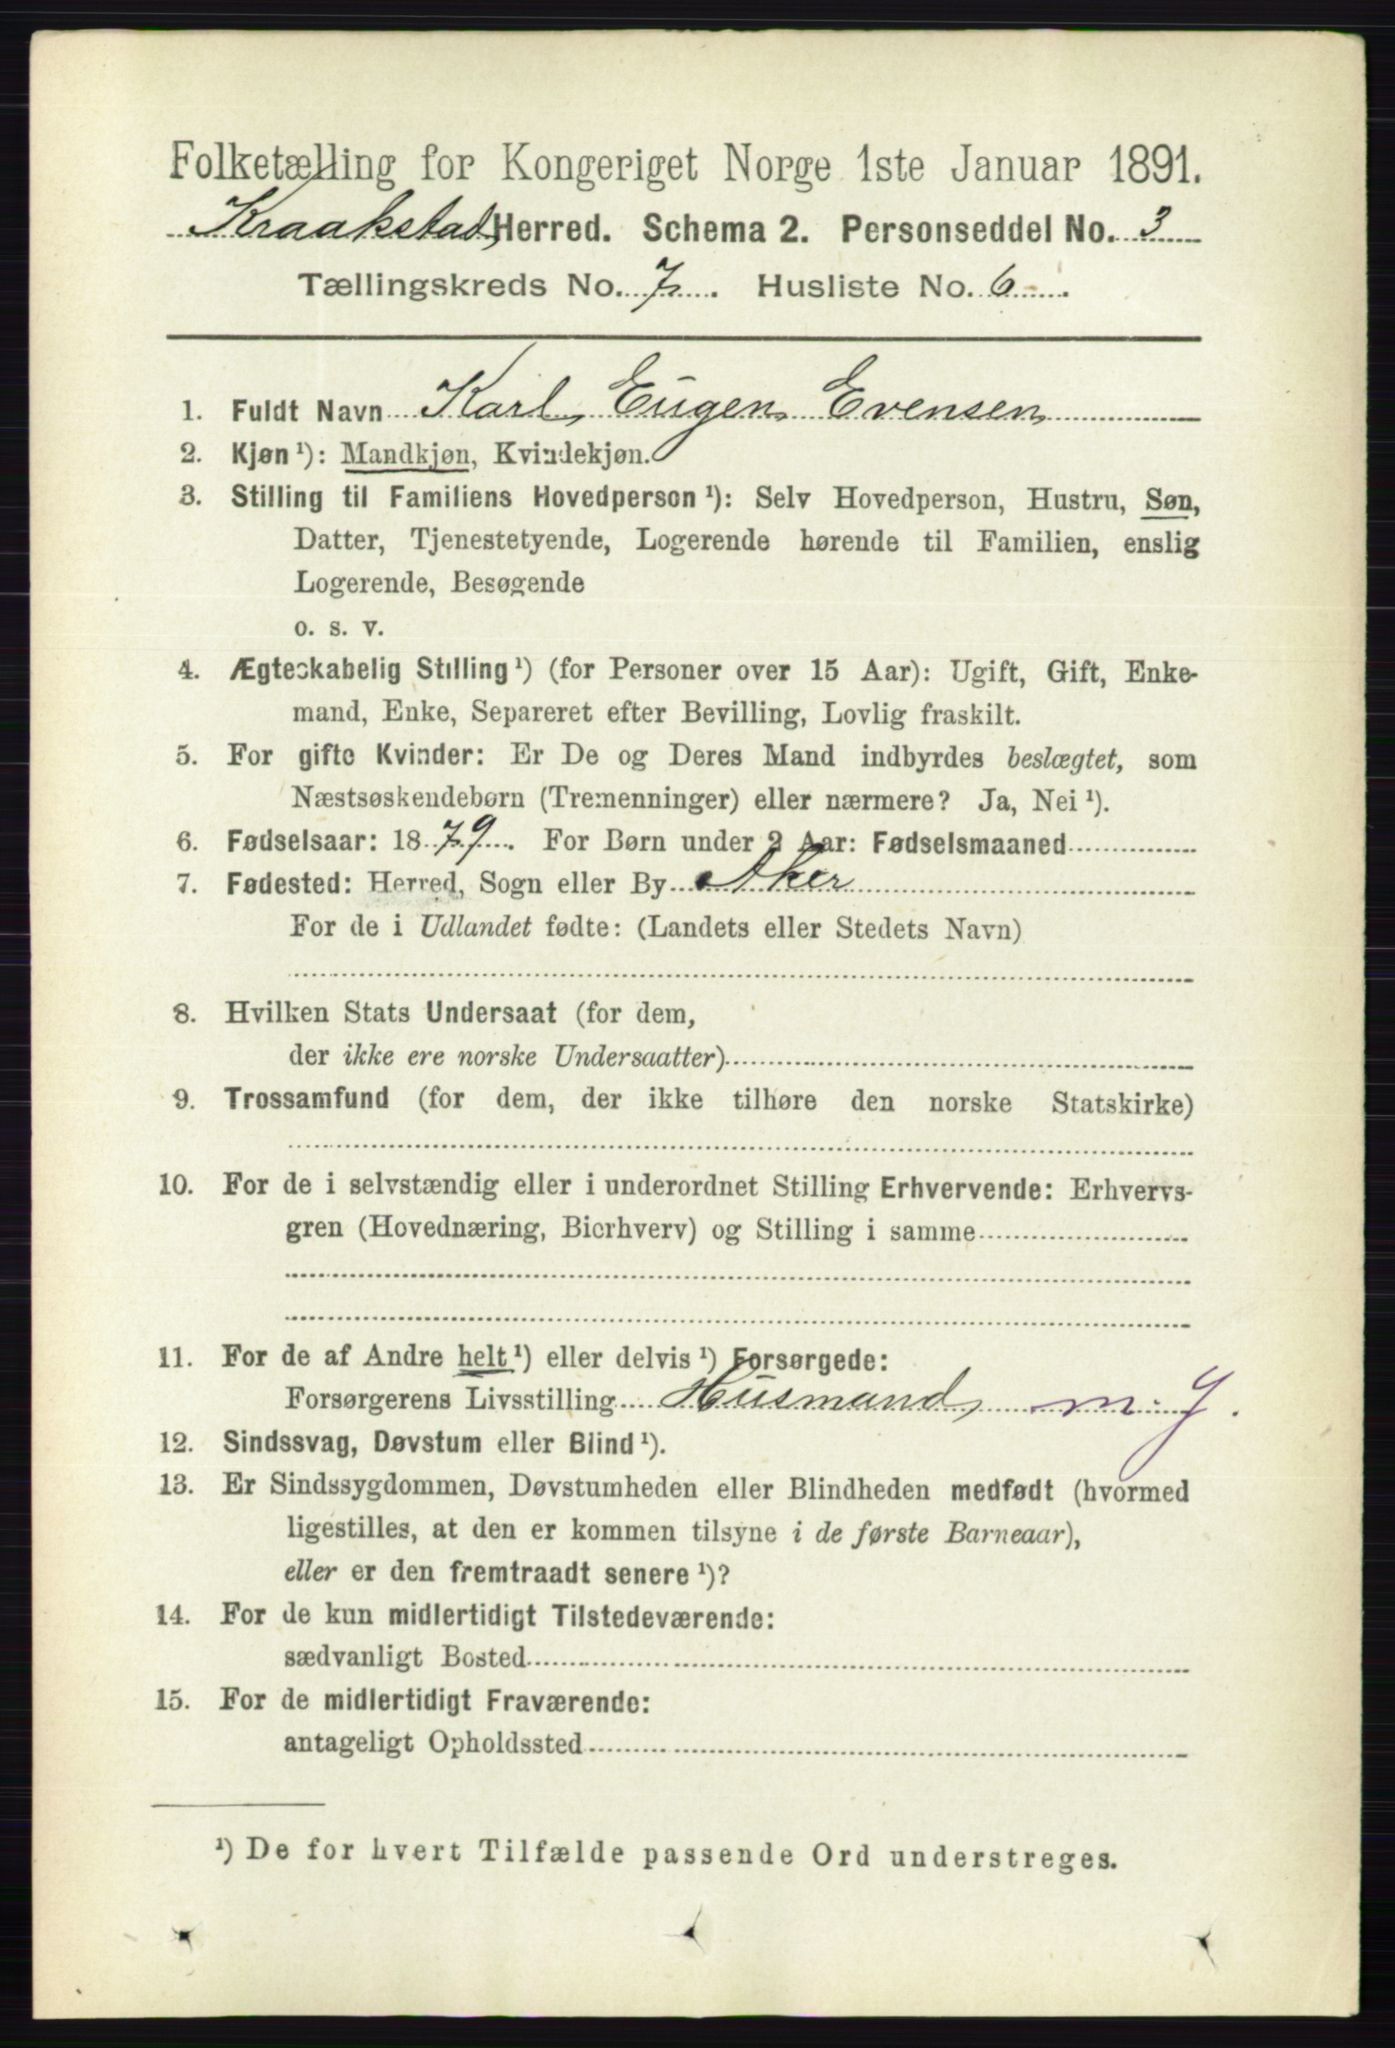 Folketælling for Kongeriget Norge 1ste Januar 1891.
Kraakstad Herred. Schema 2. Personseddel No. 3
Tællingskreds No. 7. Husliste No. 6.
1. Fuldt Navn Karl Eugen Evensen
2. Kjøn ¹): Mandkjøn, Kvindekjøn.
3. Stilling til Familiens Hovedperson ¹): Selv Hovedperson, Hustru, Søn,
Datter, Tjenestetyende, Logerende hørende til Familien, enslig
Logerende, Besøgende
o. s. v.
4. Ægteskabelig Stilling ¹) (for Personer over 15 Aar): Ugift, Gift, Enke-
mand, Enke, Separeret efter Bevilling, Lovlig fraskilt.
5. For gifte Kvinder: Er De og Deres Mand indbyrdes beslægtet, som
Næstsøskendebørn (Tremenninger) eller nærmere? Ja, Nei ¹).
6. Fødselsaar: 1879. For Børn under 2 Aar: Fødselsmaaned
7. Fødested: Herred, Sogn eller By Aker
For de i Udlandet fødte: (Landets eller Stedets Navn)
8. Hvilken Stats Undersaat (for dem,
der ikke ere norske Undersaatter)
9. Trossamfund (for dem, der ikke tilhøre den norske Statskirke)
10. For de i selvstændig eller i underordnet Stilling Erhvervende: Erhvervs-
gren (Hovednæring, Bierhverv) og Stilling i samme
11. For de af Andre helt ¹) eller delvis ¹) Forsørgede:
Forsørgerens Livsstilling Husmand m. J.
12. Sindssvag, Døvstum eller Blind ¹).
13. Er Sindssygdommen, Døvstumheden eller Blindheden medfødt (hvormed
ligestilles, at den er kommen tilsyne i de første Barneaar),
eller er den fremtraadt senere ¹)?
14. For de kun midlertidigt Tilstedeværende:
sædvanligt Bosted
15. For de midlertidigt Fraværende:
antageligt Opholdssted
¹) De for hvert Tilfælde passende Ord understreges.